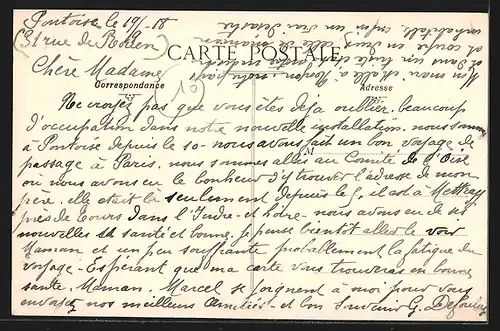 Pontoise le 19/ - 18
(51 rue de Rouen)
CARTE POSTALE
Chère Madame
Correspondance
Adresse
Ne croyez pas que vous êtes déja oublier, beaucoup
d'occupation dans notre nouvelle installation. nous sommes
à Pontoise depuis le 10 - nous avons fait un bon voyage de
passage à Paris, nous sommes allés au Comité de l'Oise
où nous avons eu le bonheur d'y trouver l'adresse de mon
père. elle était là seulement depuis le 5, il est à Mettray
près de Tours dans l'Indre et Loire - nous avons eu de ses
nouvelles sa santé est bonne, je pense bientôt aller le voir
Maman est un peu souffrante probablement la fatigue du
voyage - Espérant que ma carte vous trouveras en bonne
santé. Maman, Marcel se joignent à moi pour vous
envoyez nos meilleurs Amitiés et bon souvenir G.